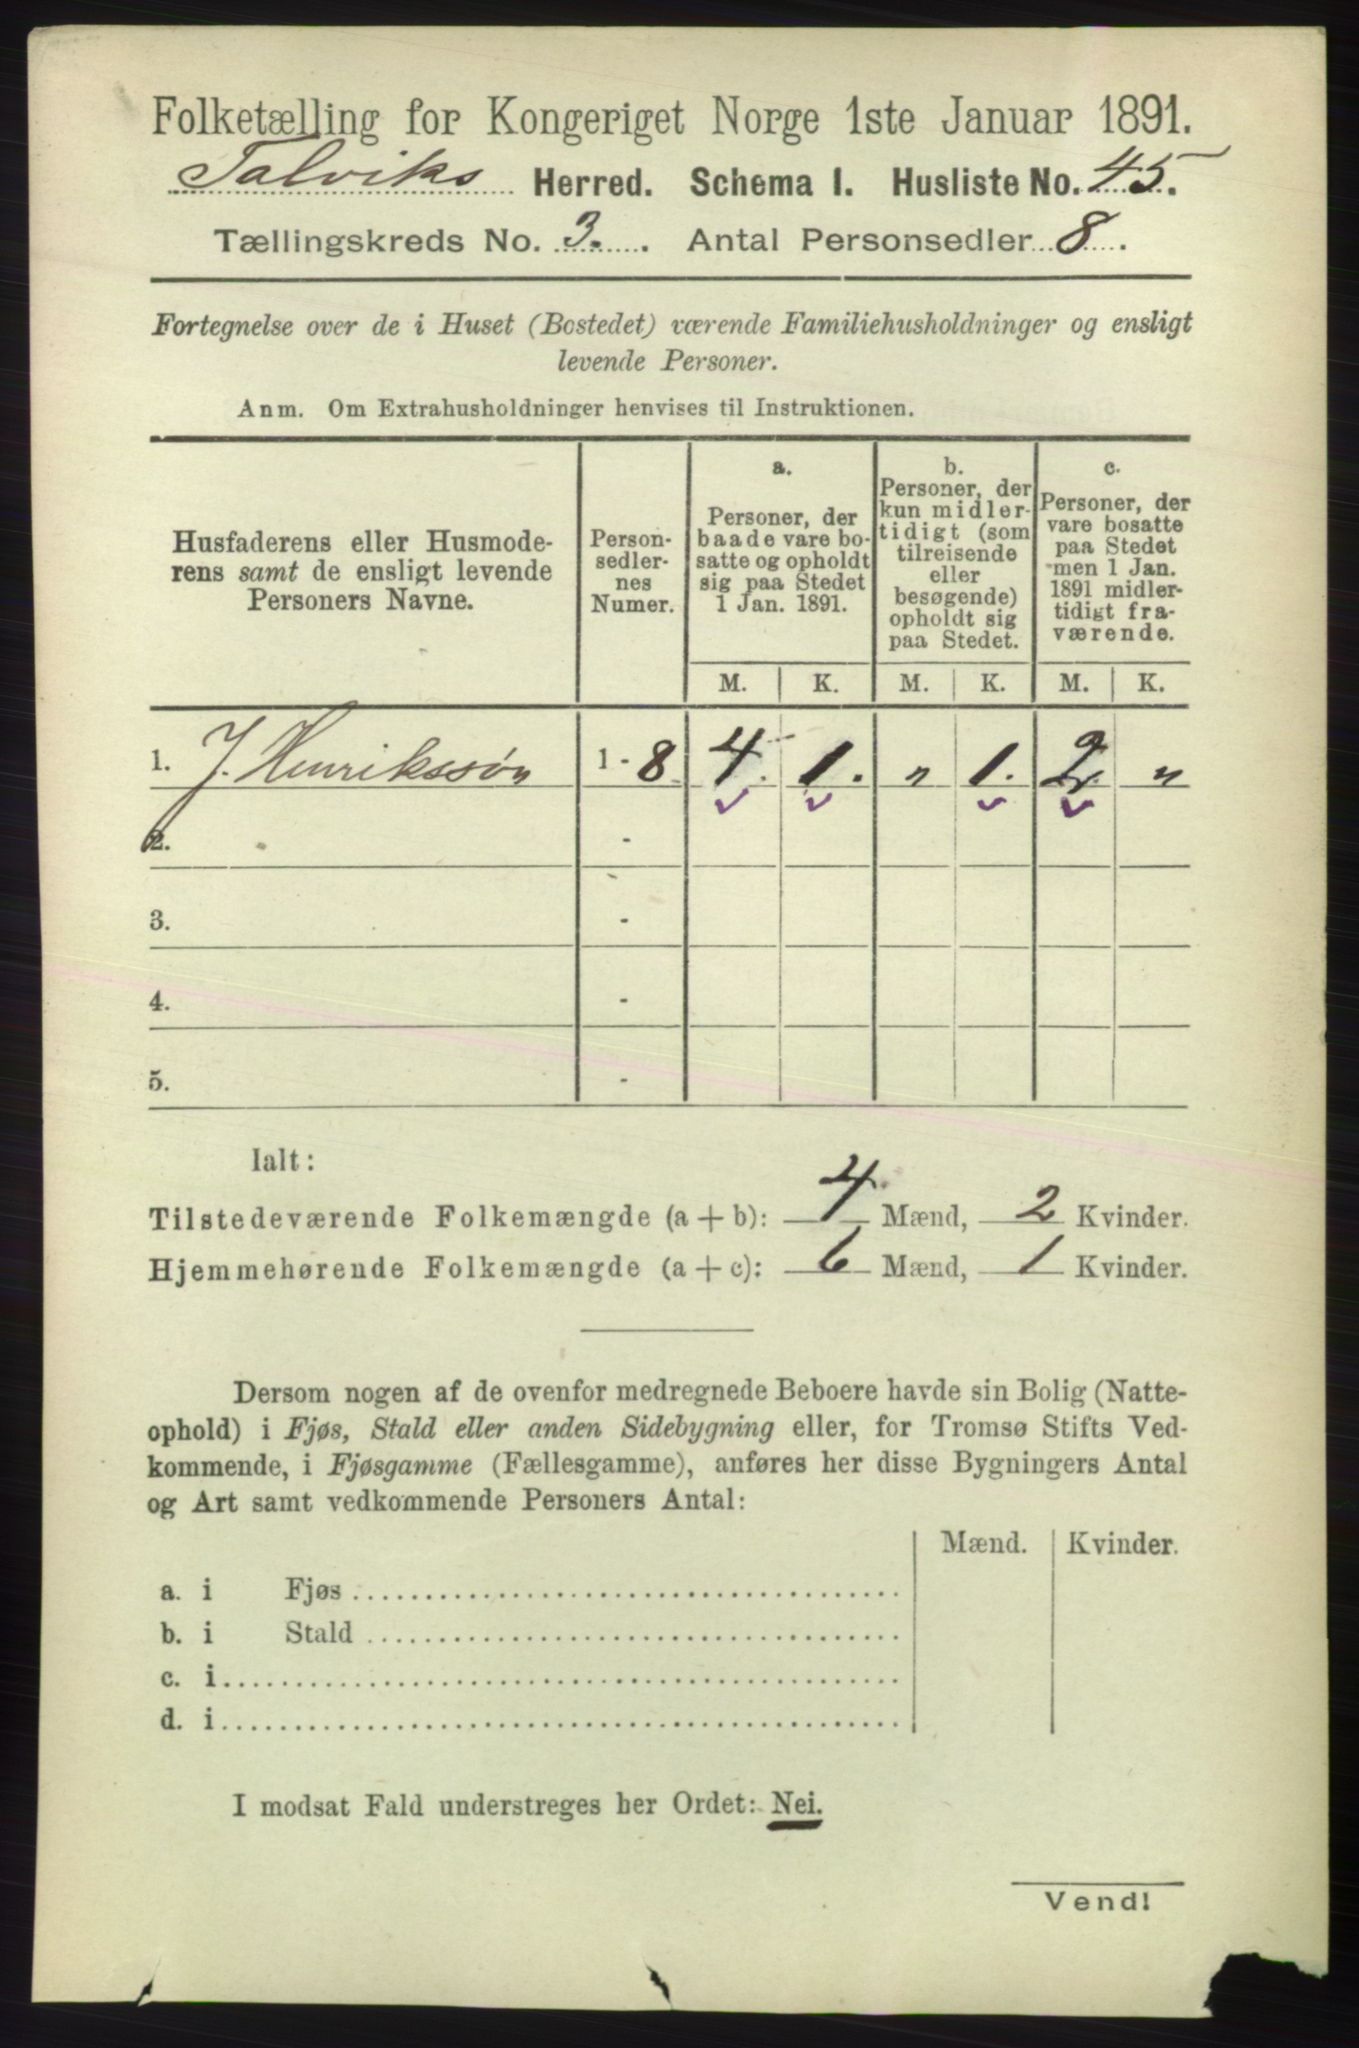 Folketælling for Kongeriget Norge 1ste Januar 1891.
Talviks Herred. Schema I. Husliste No. 45.
Tællingskreds No. 3. Antal Personsedler 8.
Fortegnelse over de i Huset (Bostedet) værende Familiehusholdninger og ensligt
levende Personer.
Anm. Om Extrahusholdninger henvises til Instruktionen.
Husfaderens eller Husmode-
rens samt de ensligt levende
Personers Navne.
Person-
sedler-
nes
Numer.
a.
Personer, der
baade vare bo-
satte og opholdt
sig paa Stedet
1 Jan. 1891.
b.
Personer, der
kun midler-
tidigt (som
tilreisende
eller
besøgende)
opholdt sig
paa Stedet.
c.
Personer, der
vare bosatte
paa Stedet
men 1 Jan.
1891 midler-
tidigt fra-
værende.
M. K. M. K. M. K.
1. J. Henrikssøn 1 - 8 4. 1. " 1. 2. "
2. -
3. -
4. -
5. -
Ialt:
Tilstedeværende Folkemængde (a + b): 4 Mænd, 2 Kvinder.
Hjemmehørende Folkemængde (a + c): 6 Mænd, 1 Kvinder.
Dersom nogen af de ovenfor medregnede Beboere havde sin Bolig (Natte-
ophold) i Fjøs, Stald eller anden Sidebygning eller, for Tromsø Stifts Ved-
kommende, i Fjøsgamme (Fællesgamme), anføres her disse Bygningers Antal
og Art samt vedkommende Personers Antal:
Mænd. Kvinder.
a. i Fjøs
b. i Stald
c. i
d. i
I modsat Fald understreges her Ordet: Nei.
Vend!